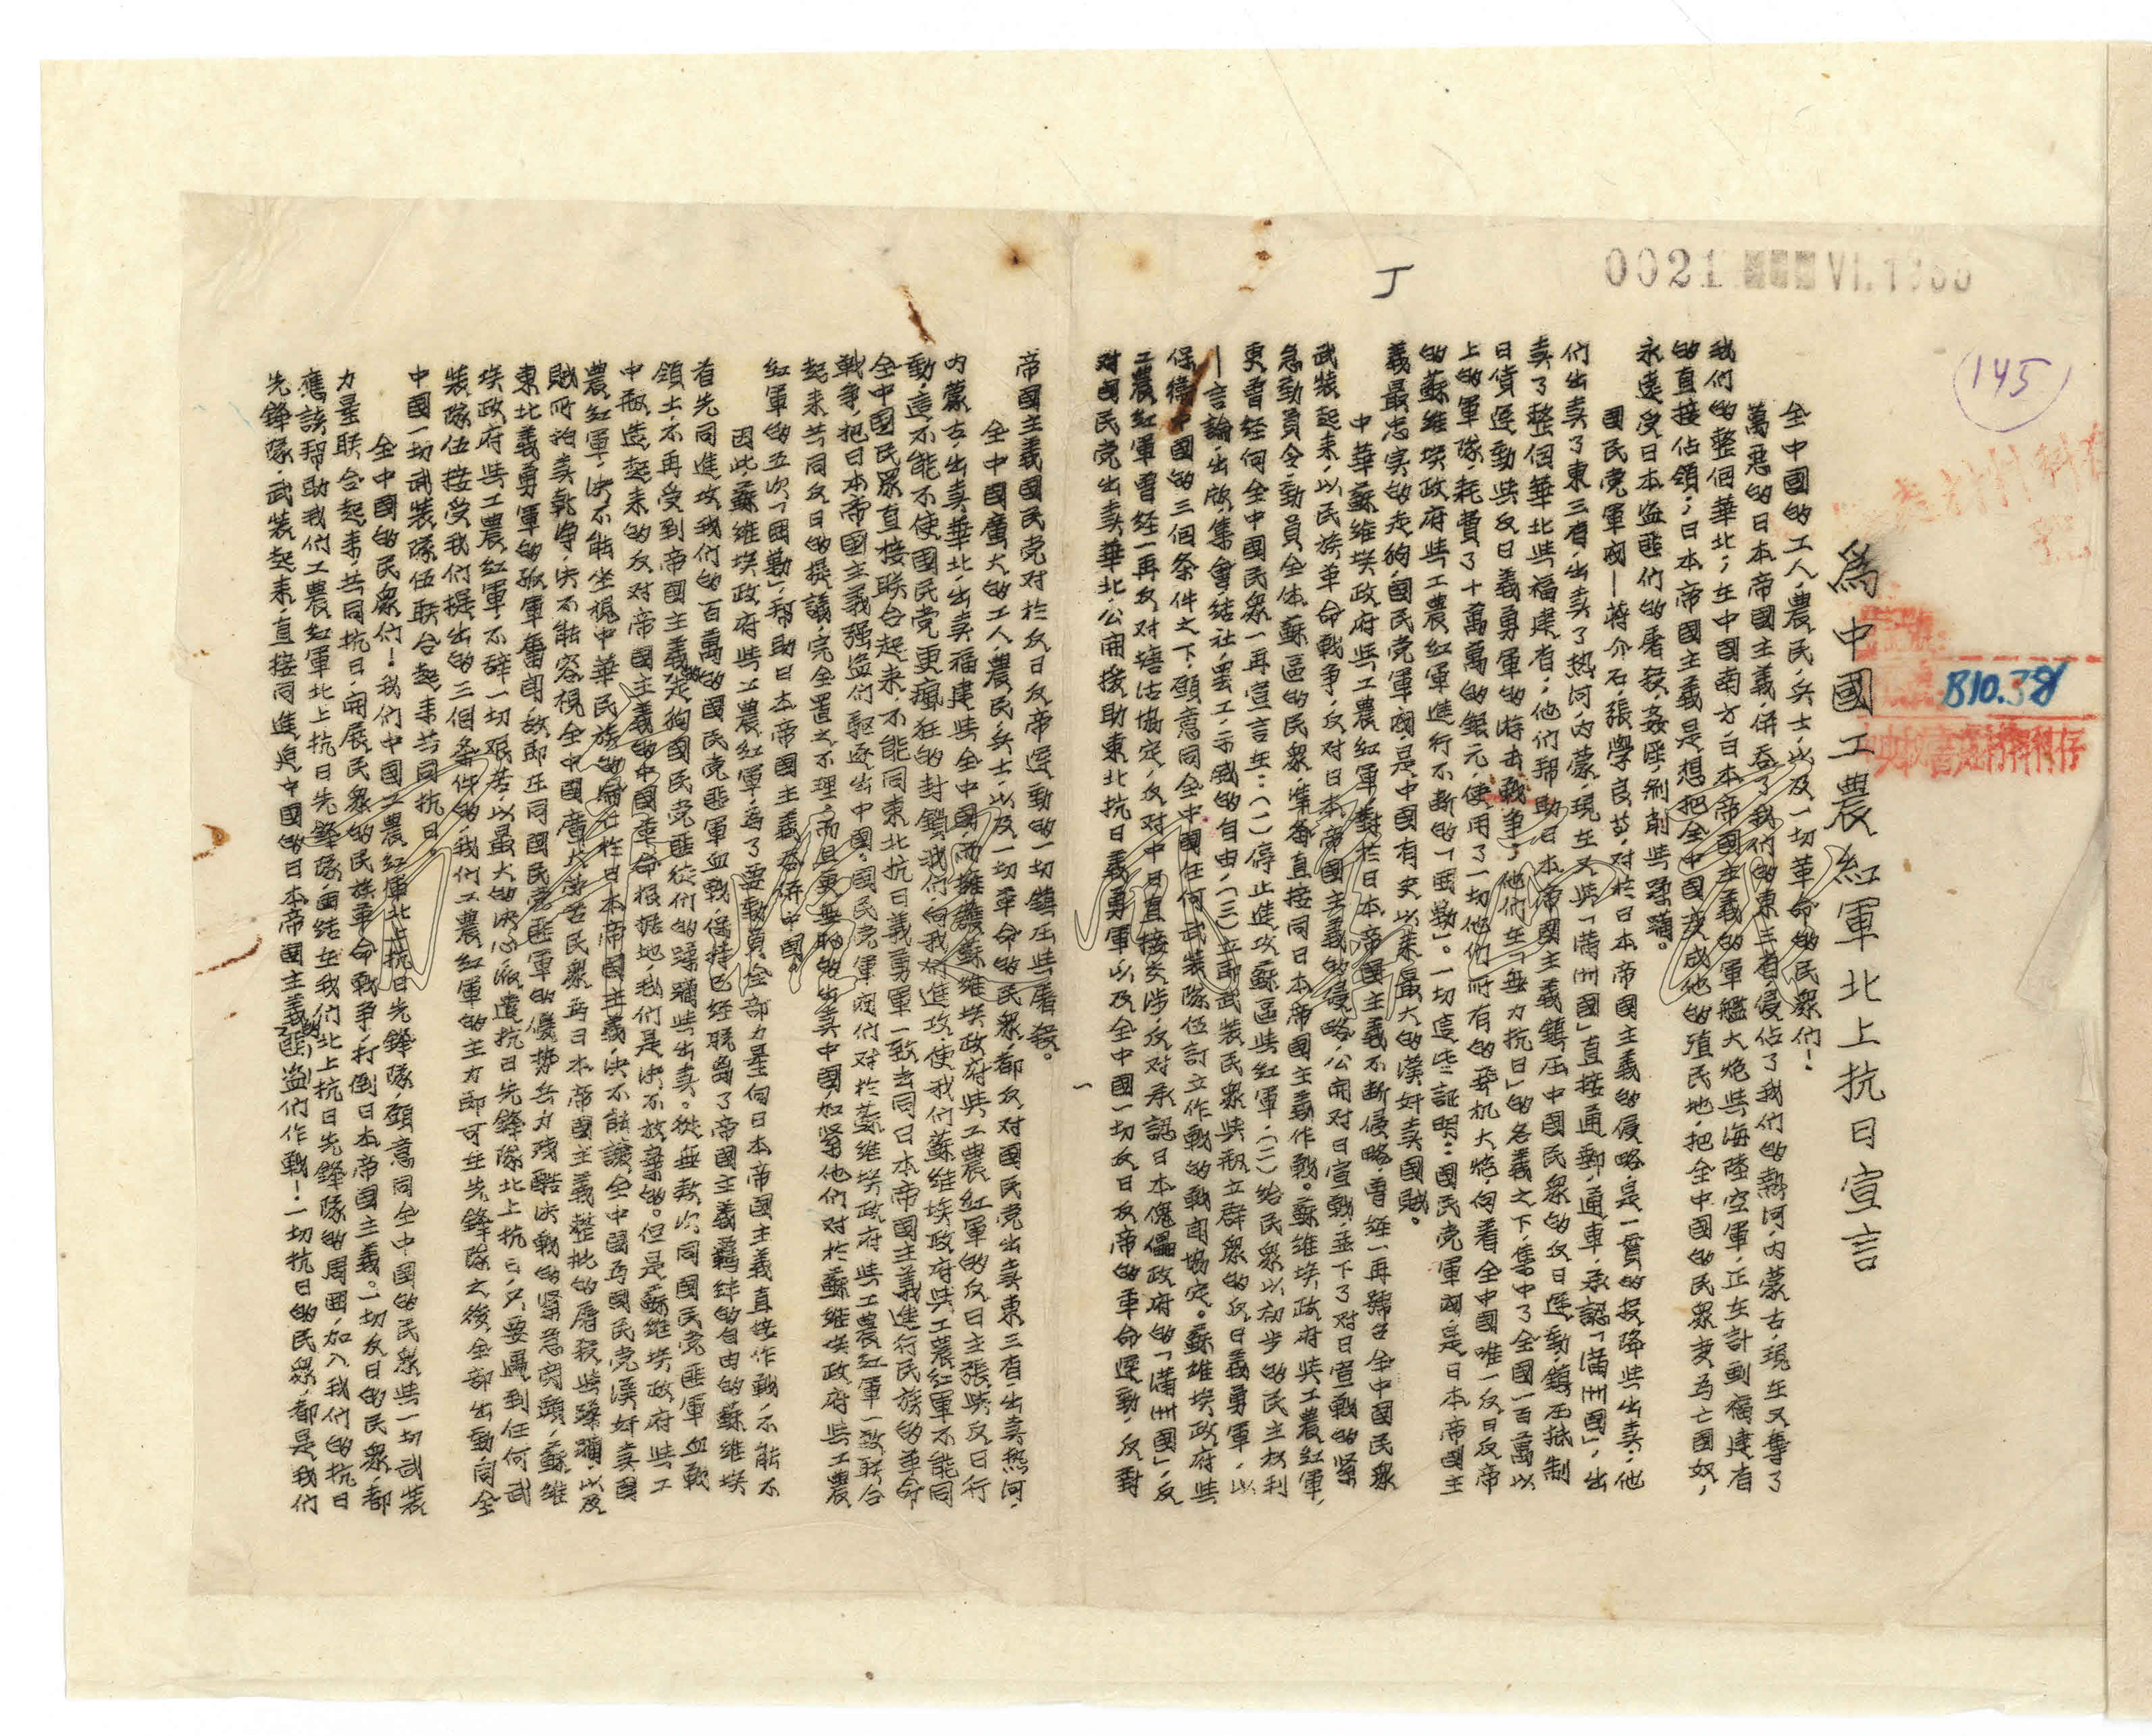 0021 VI.
145
B10.38
丁
為中國工農紅軍北上抗日宣言
全中國的工人,農民,兵士,以及一切革命的民眾們!
萬惡的日本帝國主義,併吞了我们的東三省,侵佔了我们的熱河,内蒙古,現在又奪了
我们的整個華北;在中國南方,日本帝國主義的軍艦大炮與海陸空軍,正在計劃福建省
的直接佔領;日本帝國主義是想把全中國变成他的殖民地,把全中國的民眾变為亡國奴,
永遠受日本盜匪们的屠殺,姦淫,剝削與蹂躪。
國民党軍阀—蔣介石,張學良等,对於日本帝國主義的侵略,是一貫的投降與出卖;他
们出卖了東三省,出卖了热河,内蒙,現在又與「满州國」直接通郵,通車,承認「满州國」,出
卖了整個華北與福建省;他们帮助日本帝國主義鎮压中國民眾的反日運動,鎮压抵制
日貨運動與反日義勇軍的游击戰争;他们在「無力抗日」的名義之下,集中了全國一百萬以
上的軍隊,耗費了十萬萬的銀元,使用了一切他们所有的飛机大炮,向着全中國唯一反日反帝
的蘇維埃政府與工農紅軍進行不断的「囲勦」。一切這些証明:國民党軍阀,是日本帝國主
義最忠实的走狗,國民党軍阀,是中國有史以来最大的漢奸卖國賊。
中華蘇維埃政府與工農紅軍,對於日本帝國主義不断侵略,曾經一再號召全中國民眾
武裝起来,以民族革命戰争,反对日本帝國主義的侵略,公開对日宣戰,並下了对日宣戰的緊
急動員令,動員全体蘇區的民眾,準备直接同日本帝國主義作戰。蘇維埃政府與工農紅軍,
更曾經向全中國民眾一再宣言在:(一)停止進攻蘇區與紅軍,(二)給民眾以初步的民主权利
—言論,出版,集會,結社,罢工,示威的自由,(三)立即武裝民眾與創立群眾的反日義勇軍,以
保衛中國的三個条件之下,願意同全中國任何武裝隊伍訂立作戰的戰鬥協定。蘇維埃政府與
工農紅軍曾經一再反对塘沽協定,反对中日直接交涉,反对承認日本傀儡政府的「满州國」,反
对國民党出卖華北,公開援助東北抗日義勇軍,以及全中國一切反日反帝的革命運動,反對
一
帝國主義國民党对於反日反帝運動的一切鎮压與屠殺。
全中國廣大的工人,農民,兵士,以及一切革命的民眾,都反对國民党出卖東三省,出卖热河,
内蒙古,出卖華北,出卖福建與全中國,而擁護蘇維埃政府與工農紅軍的反日主張與反日行
動,這不能不使國民党更瘋狂的封鎖我们,向我们進攻,使我们蘇維埃政府與工農紅軍不能同
全中國民眾直接联合起来,不能同東北抗日義勇軍一致去同日本帝國主義進行民族的革命
戰争,把日本帝國主義强盜们驅逐出中國。國民党軍阀们对於蘇維埃政府與工農紅軍一致联合
起来共同反日的提議,完全置之不理,而且更無耻的出卖中國,加緊他们对於蘇維埃政府與工農
紅軍的五次「囲勦」,帮助日本帝國主義吞併中國。
因此,蘇維埃政府與工農紅軍,為了要動員全部力量向日本帝國主義直接作戰,不能不
首先同進攻我们的百萬的國民党匪軍血戰,保持已經脱离了帝國主義羈绊的自由的蘇維埃
領土,不再受到帝國主義與走狗國民党匪徒们的蹂躪與出卖。從無數次同國民党匪軍血戰
中創造起来的反对帝國主義的中國革命根据地,我们是决不放棄的。但是蘇維埃政府與工
農紅軍,决不能坐視中華民族的淪亡於日本帝國主義,决不能讓全中國為國民党漢奸卖國
賊所拍卖乾净,决不能容視全中國廣大勞苦民眾為日本帝國主義整批的屠殺與蹂躪,以及
東北義勇軍的孤軍奮鬥,故即在同國民党匪軍的優势兵力残酷决戰的緊急関頭,蘇維
埃政府與工農紅軍,不辞一切艰苦,以最大的决心派遣抗日先鋒隊北上抗日,只要遇到任何武
裝隊伍接受我们提出的三個条件的,我们工農紅軍的主力即可在先鋒隊之後全部出動,同全
中國一切武裝隊伍联合起来共同抗日。
全中國的民眾们!我们中國工農紅軍北上抗日先鋒隊,願意同全中國的民眾與一切武裝
力量联合起来,共同抗日,開展民眾的民族革命戰争,打倒日本帝國主義。一切反日的民眾,都
應該帮助我们工農紅軍北上抗日先鋒隊,团結在我们北上抗日先鋒隊的周囲,加入我们的抗日
先鋒隊,武裝起来,直接同進佔中國的日本帝國主義的盜们作戰!一切抗日的民眾,都是我们